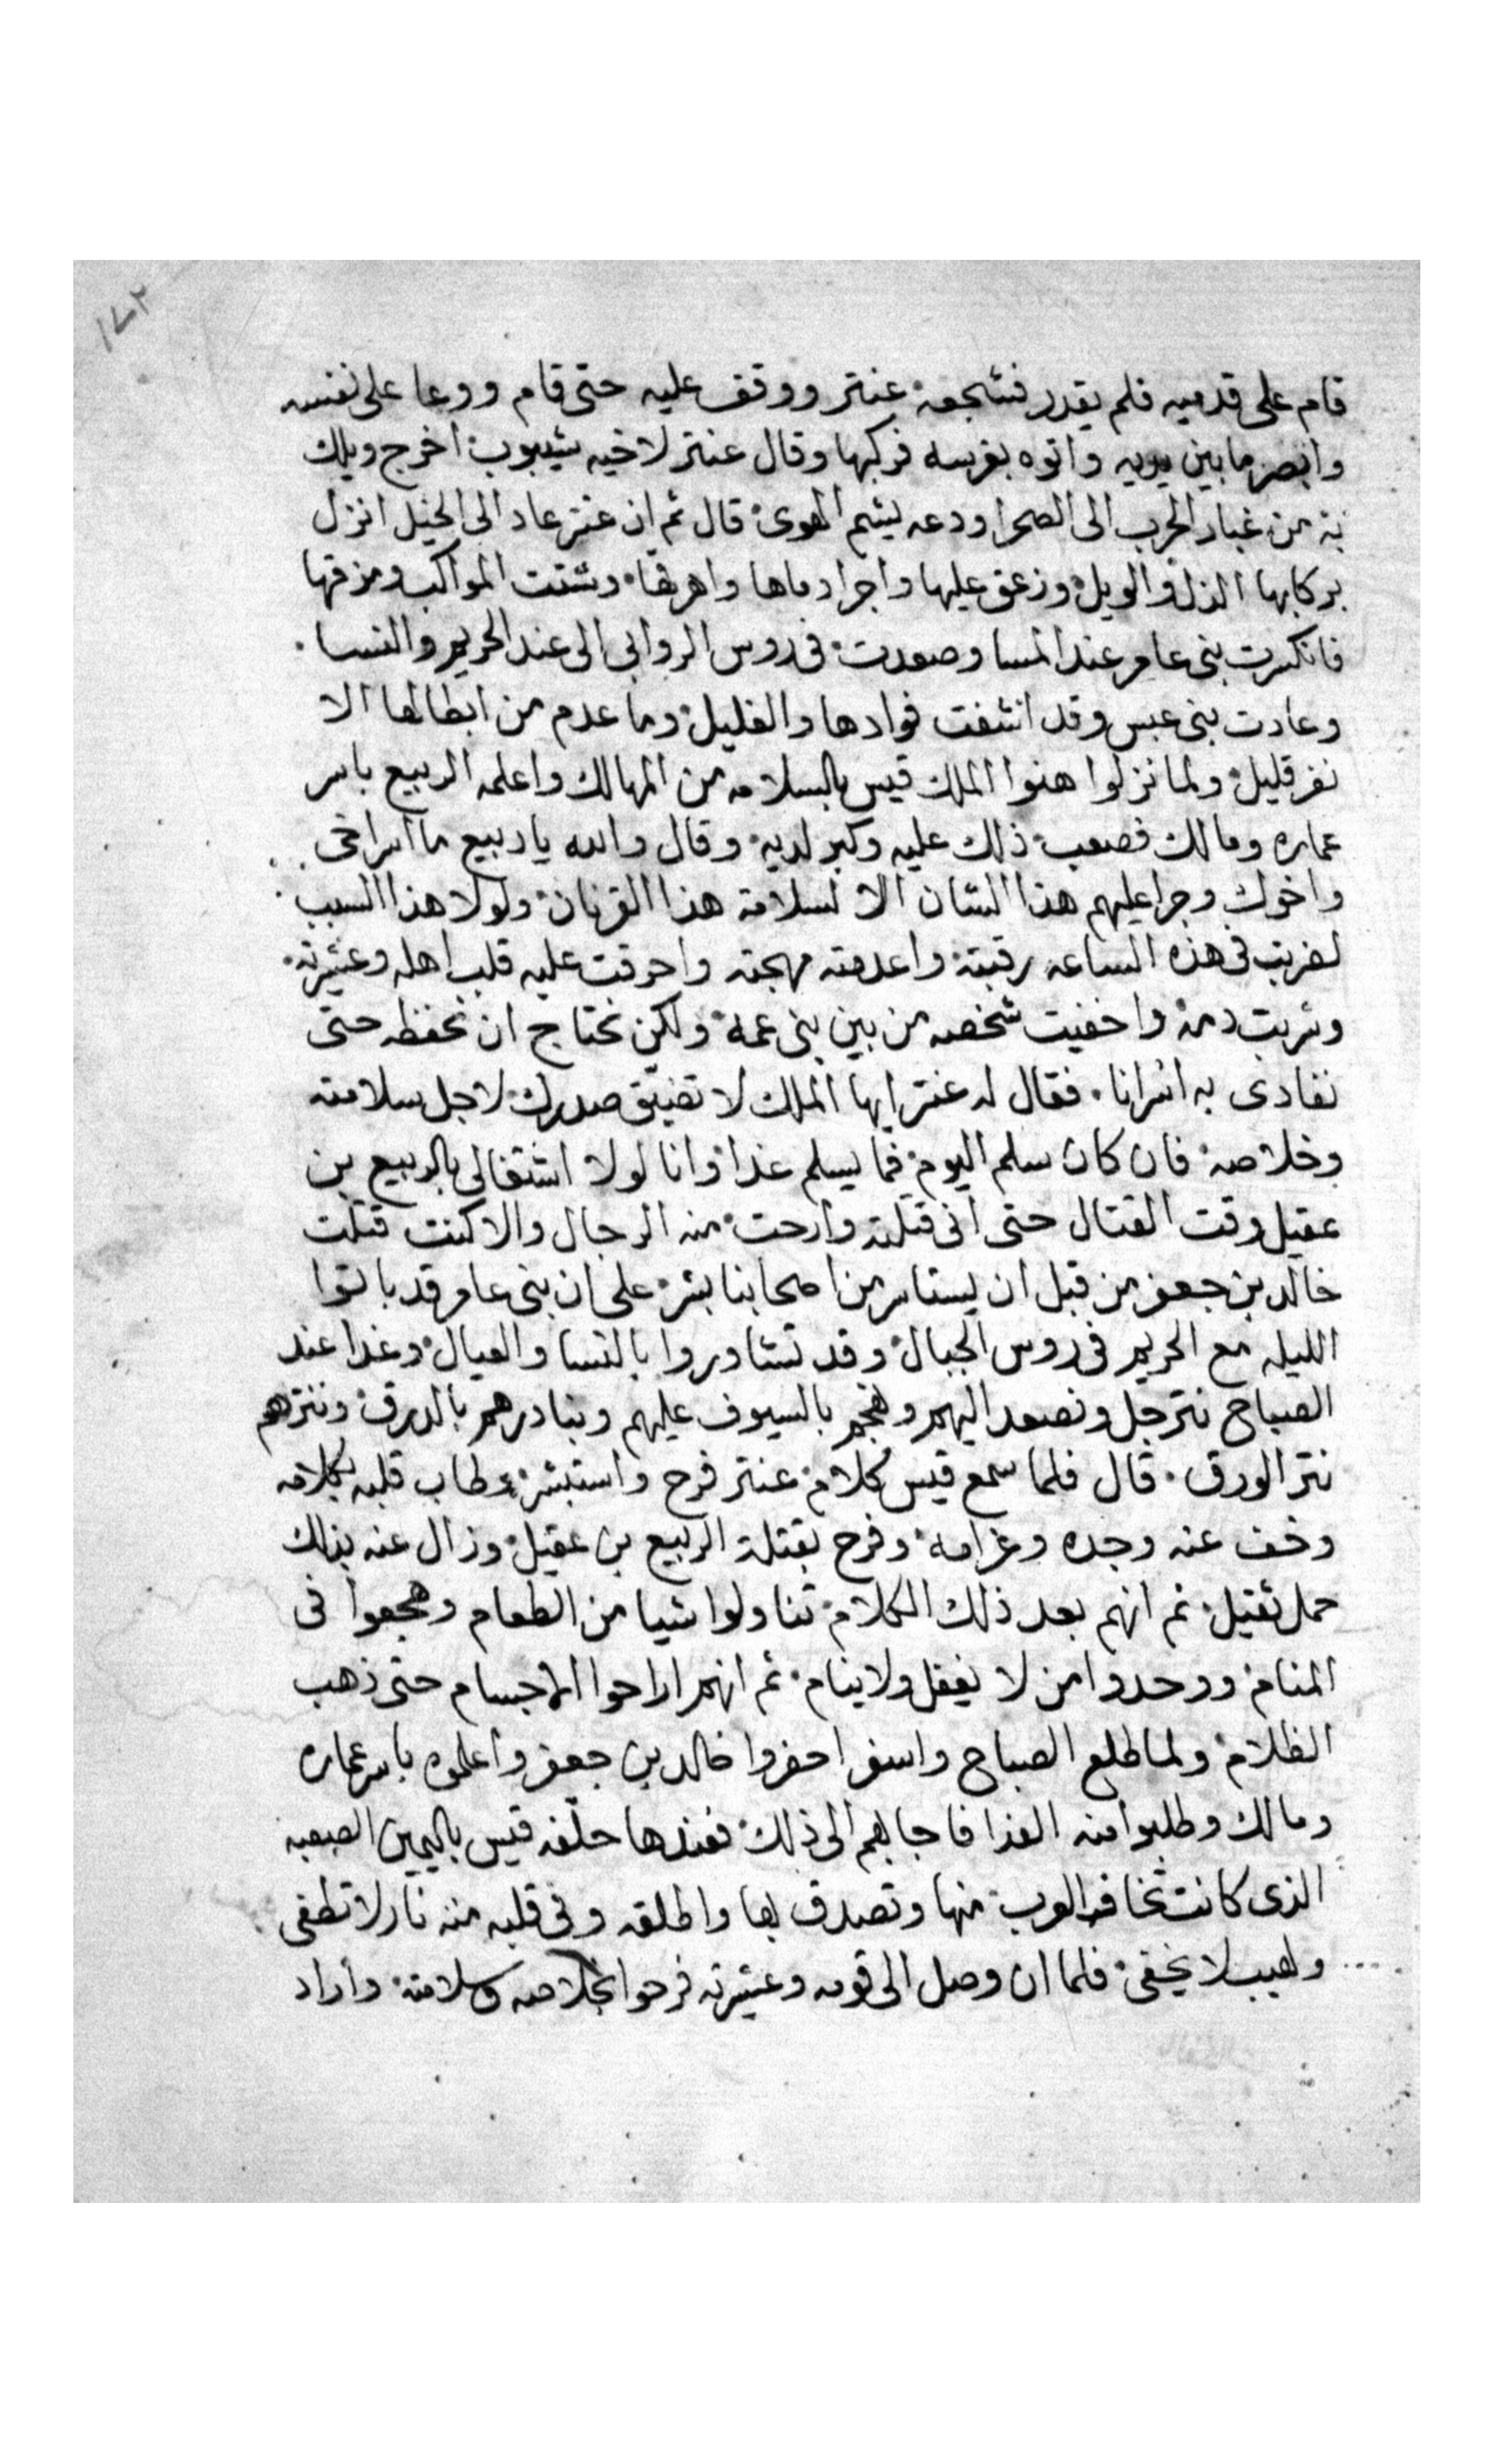 ١٧٢
قام على قدميه فلم يقدر فشجعه عنتر ووقف عليه حتى قام ووعا على نفسه
وابصر ما بين يديه واتوه بفرسه فركبها وقال عنتر لاخيه شيبوب اخرج ويلك
به من غبار الحرب الى الصحرا ودعه يشم الهوى قال ثم ان عنتر عاد الى الخيل انزل
بركابها الذل والويل وزعق عليها واجرا دماها واهرقها وشتت المواكب ومزقها
فانكسرت بنى عامر عند المسا وصعدت فى روس الروابى الى عند الحريم والنسا
وعادت بنى عبس وقد انشفت فوادها والغليل وما عدم من ابطالها الا
نفر قليل ولما نزلوا هنوا الملك قيس بالسلامه من المهالك واعلمه الربيع باسر
عماره ومالك فصعب ذلك عليه وكبر لديه وقال والله يا ربيع ما اسر اخى
واخوك وجرا عليهم هذا الشان الا لسلامة هذا القرنان ولولا هذا السبب
لضربت فى هذه الساعه رقبته واعدمته مهجته واحرقت عليه قلب اهله وعشيرته
وشربت دمه واخفيت شخصه من بين بنى عمه ولكن نحتاج ان نحفظه حتى
نفادى به اسرانا فقال له عنتر ايها الملك لا تضيّق صدرك لاجل سلامته
وخلاصه فان كان سلم اليوم فما يسلم غدا وانا لولا اشتغالى بالربيع بن
عقيل وقت القتال حتى انى قتلته وارحت منه الرجال والا كنت قتلت
خالد بن جعفر من قبل ان يستاسر من اصحابنا بشر على ان بنى عامر قد باتوا
الليله مع الحريم فى روس الجبال وقد تشاوروا بالنسا والعيال وغدا عند
الصباح نترجل ونصعد اليهم ونهجم بالسيوف عليهم ونبادرهم بالدرق وننترهم
نتر الورق قال فلما سمع قيس كلام عنتر فرح واستبشر وطاب قلبه بكلامه
وخف عنه وجده وغرامه وفرح بقتلة الربيع بن عقيل وزال عنه بذلك
حمل ثقيل ثم انهم بعد ذلك الكلام تناولوا شيا من الطعام وهجعوا فى
المنام ووحدوا من لا يغفل ولا ينام ثم انهم اراحوا الاجسام حتى ذهب
الظلام ولما طلع الصباح واسفر احضروا خالد بن جعفر واعلموه باسر عماره
ومالك وطلبوا منه الفدا فاجابهم الى ذلك فعندها حلّفه قيس باليمين الصعبه
الذى كانت تخافه العرب منها وتصدق بها واطلقه وفى قلبه منه نار لا تطفى
ولهيب لا يخفى فلما ان وصل الى قومه وعشيرته فرحوا بخلاصه وسلامته واراد